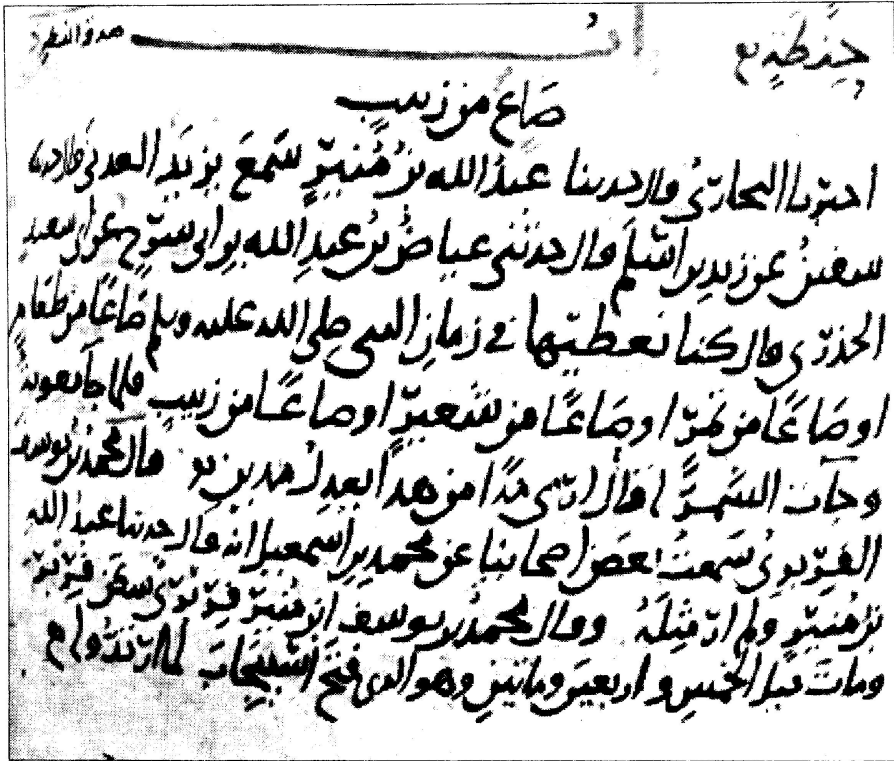 حنطة
صَاع من زبيب
اخبرنا البخاريُّ قال حدثنا عبدُ الله بنُ مُنيرٍ سَمعَ يزيدَ العدنيَّ قال حدثنا
سفينُ عن زيدِ بن اسْلَم قال حدثني عياضُ بنُ عبدِ الله بن ابي سرحٍ عن ابي سعيدٍ
الخدرّي قال كنا نعطيها في زمان النبي صلى الله عليه وسلم صَاعًا من طعامٍ
او صَاعًا من تمرّ او صَاعًا من شعيرّ او صاعًا من زبيبٍ فلما جآ معوية
وجآت السَّمرآ قال ارّى مدًا من هذا يعدِل مدينِ قال محمدُ بنُ يوسف
الفِرَبريُ سَمعتُ بعَضَ اصحابنا عن محمدِ بن اسمعيل انه قال حدثنا عبدُ الله
بنُ منيرٍ ولم ارّ مثِلَهُ وقال محمدُ بن يوسفَ ابن منيرّ فِرَبريٌّ سكنَ فِرَبرّ
وماتَ قبلَ الخمسِ واربعينَ ومائتينِ وهو الذي فتحَ اسْبيجابَ لما ارّتدوا